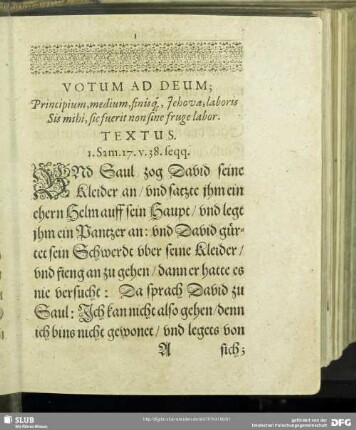 1
VOTUM AD DEUM;
Principium, medium, finisq́, Jehova, laboris
Sis mihi, sic fuerit non sine fruge labor.
TEXTUS.
1. Sam. 17. v. 38. seqq.
VNd Saul zog David seine
Kleider an / vnd satzte jhm ein
ehern Helm auff sein Haupt / vnd legt
jhm ein Pantzer an: vnd David gür-
tet sein Schwerdt vber seine Kleider /
vnd fieng an zu gehen / dann er hatte es
nie versucht: Da sprach David zu
Saul: Jch kan nicht also gehen / denn
ich bins nicht gewonet / vnd legets von
A sich;
SLUB
gefördert von der
Deutschen Forschungsgemeinschaft
DFG